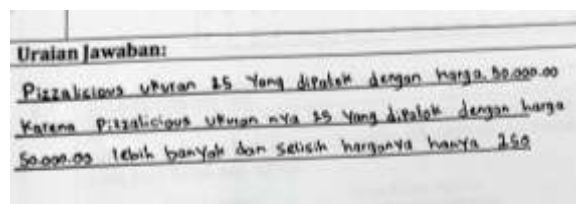 Uraian Jawaban:
Pizzalicious ukuran 25 Yang dipatok dengan harga 50.000.00
Karena Pizzalicious ukuran nya 25 Yang dipatok dengan harga
50.000.00 lebih banyak dan selisih harganya hanya 250